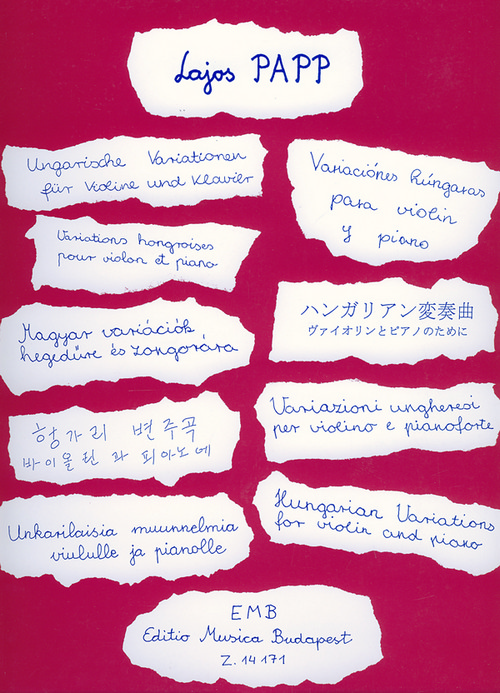 Lajos PAPP
Ungarische Variationen
für Violine und Klavier
Variaciónes húngaras
para violin
y piano
Variations hongroises
pour violon et piano
ハンガリアン変奏曲
ヴァイオリンとピアノのために
Magyar variációk
hegedűre és zongorára
Variazioni ungheresi
per violino e pianoforte
항가리 변주곡
바이올린 라 피아노에
Hungarian Variations
for violin and piano
Unkarilaisia muunnelmia
viululle ja pianolle
EMB
Editio Musica Budapest
Z. 14 171